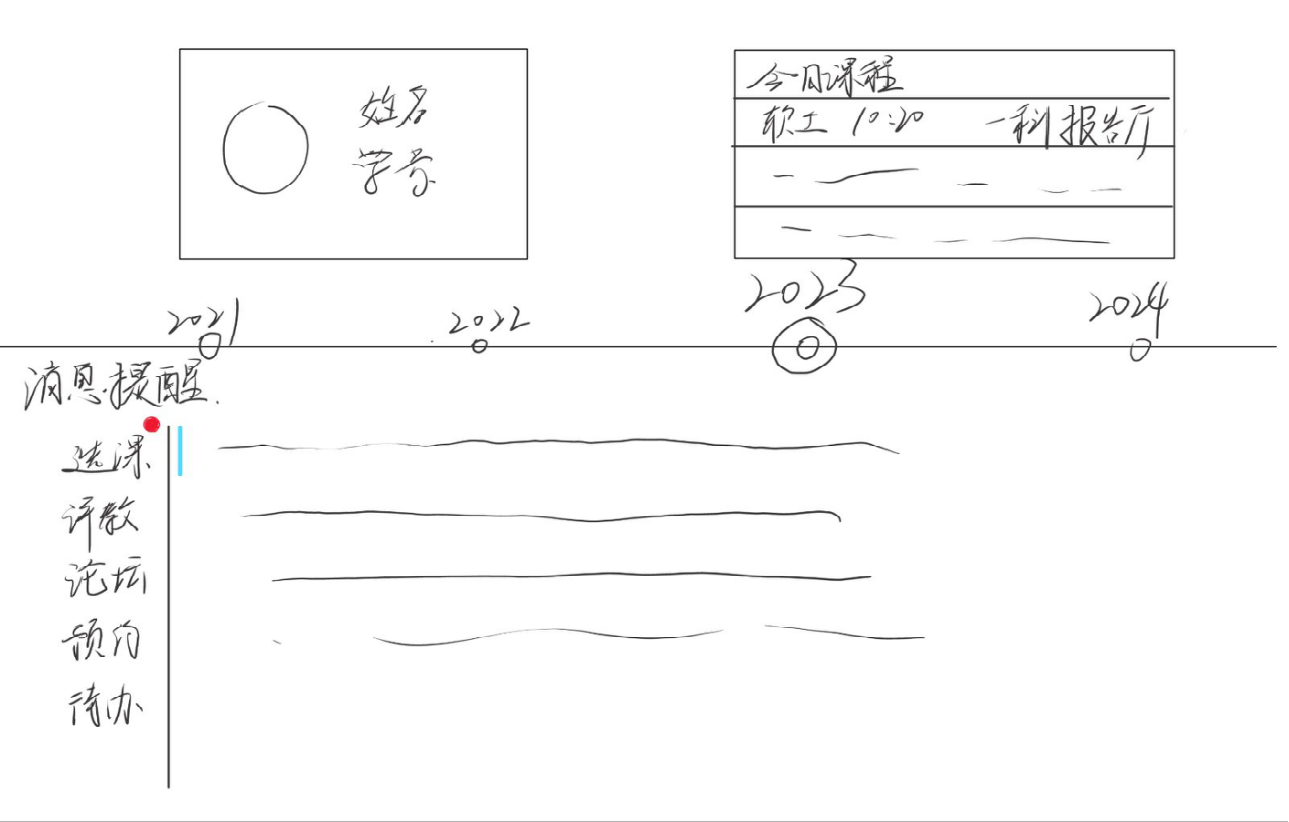 姓名
学号
今日课程
软工 10:20 一科报告厅
2021 2022 2023 2024
消息提醒.
选课
评教
论坛
预约
待办